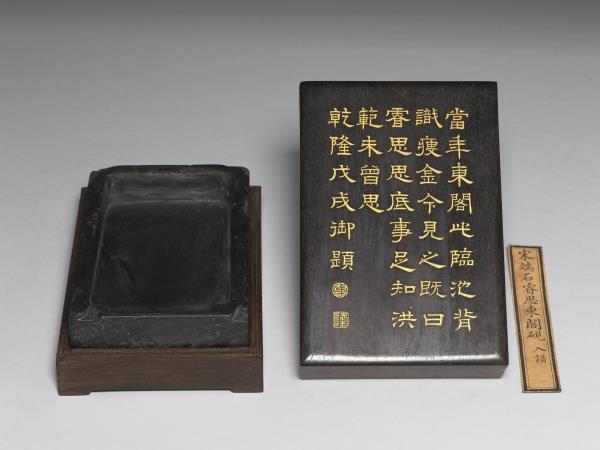 當年東閣此臨池背
識瘦金今見之既曰
睿思思底事足知洪
範未曾思
乾隆戊戌御題
宋端石睿思東閣硯 入譜